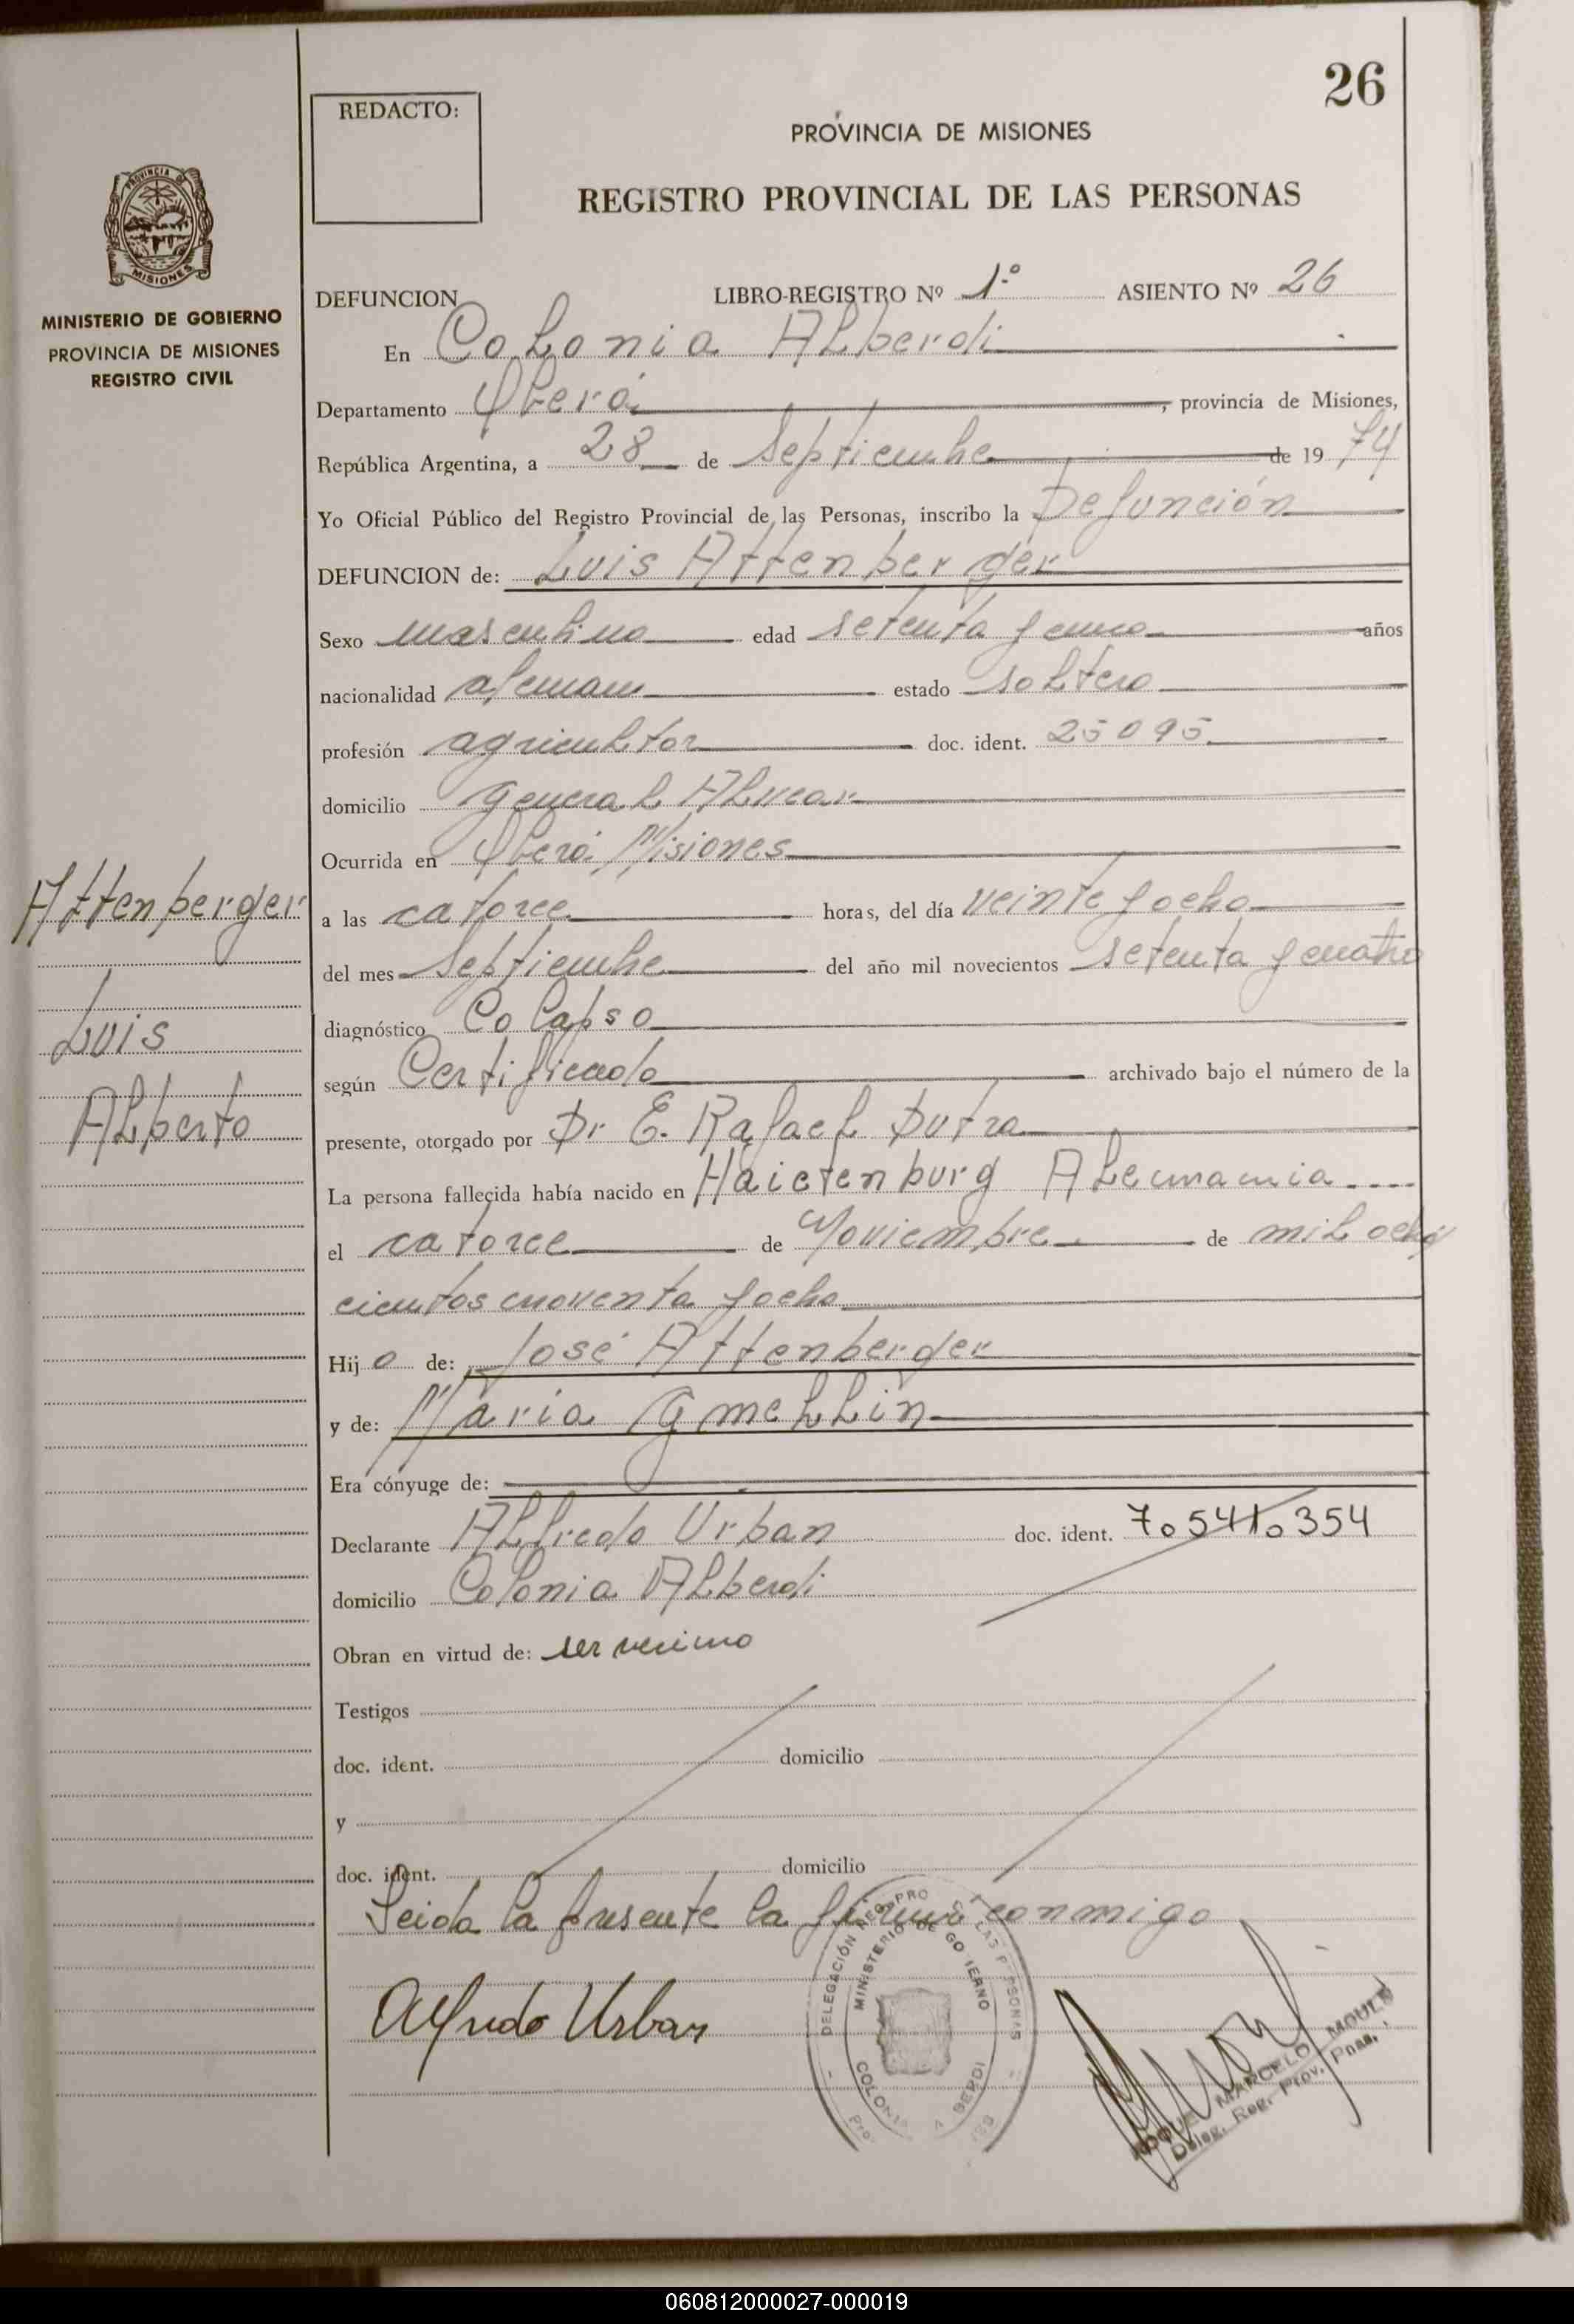 26
REDACTO:
PROVINCIA DE MISIONES
REGISTRO PROVINCIAL DE LAS PERSONAS
PROVINCIA DE
MISIONES
MINISTERIO DE GOBIERNO
PROVINCIA DE MISIONES
REGISTRO CIVIL
DEFUNCION LIBRO-REGISTRO Nº 1º ASIENTO Nº 26
En Colonia Alberdi
Departamento Oberá, provincia de Misiones,
República Argentina, a 28 de Septiembre de 1974
Yo Oficial Público del Registro Provincial de las Personas, inscribo la Defunción
DEFUNCION de: Luis Attenberger
Sexo masculino edad setenta y cinco años
nacionalidad aleman estado soltero
profesión agricultor doc. ident. 25095
domicilio General Alvear
Ocurrida en Oberá Misiones
a las catorce horas, del día veinte y ocho
del mes Septiembre del año mil novecientos setenta y cuatro
diagnóstico Colapso
según Certificado archivado bajo el número de la
presente, otorgado por Dr E. Rafael Dutra
La persona fallecida había nacido en Haictenburg Alemania
el catorce de Noviembre de mil ocho
cientos noventa y ocho
Hijo de: José Attenberger
y de: Maria Gmellin
Era cónyuge de:
Declarante Alfredo Urban doc. ident. 7.541.354
domicilio Colonia Alberdi
Obran en virtud de: ser vecino
Testigos
doc. ident. domicilio
y
doc. ident. domicilio
Leida la presente la firma conmigo
Alfredo Urban
Attenberger
Luis
Alberto
DELEGACIÓN REG PRO LAS PERSONAS
MINISTERIO DE GOBIERNO
COLONIA ALBERDI
ROQUE MARCELO
Deleg. Reg. Prov. Pnas.
060812000027-000019